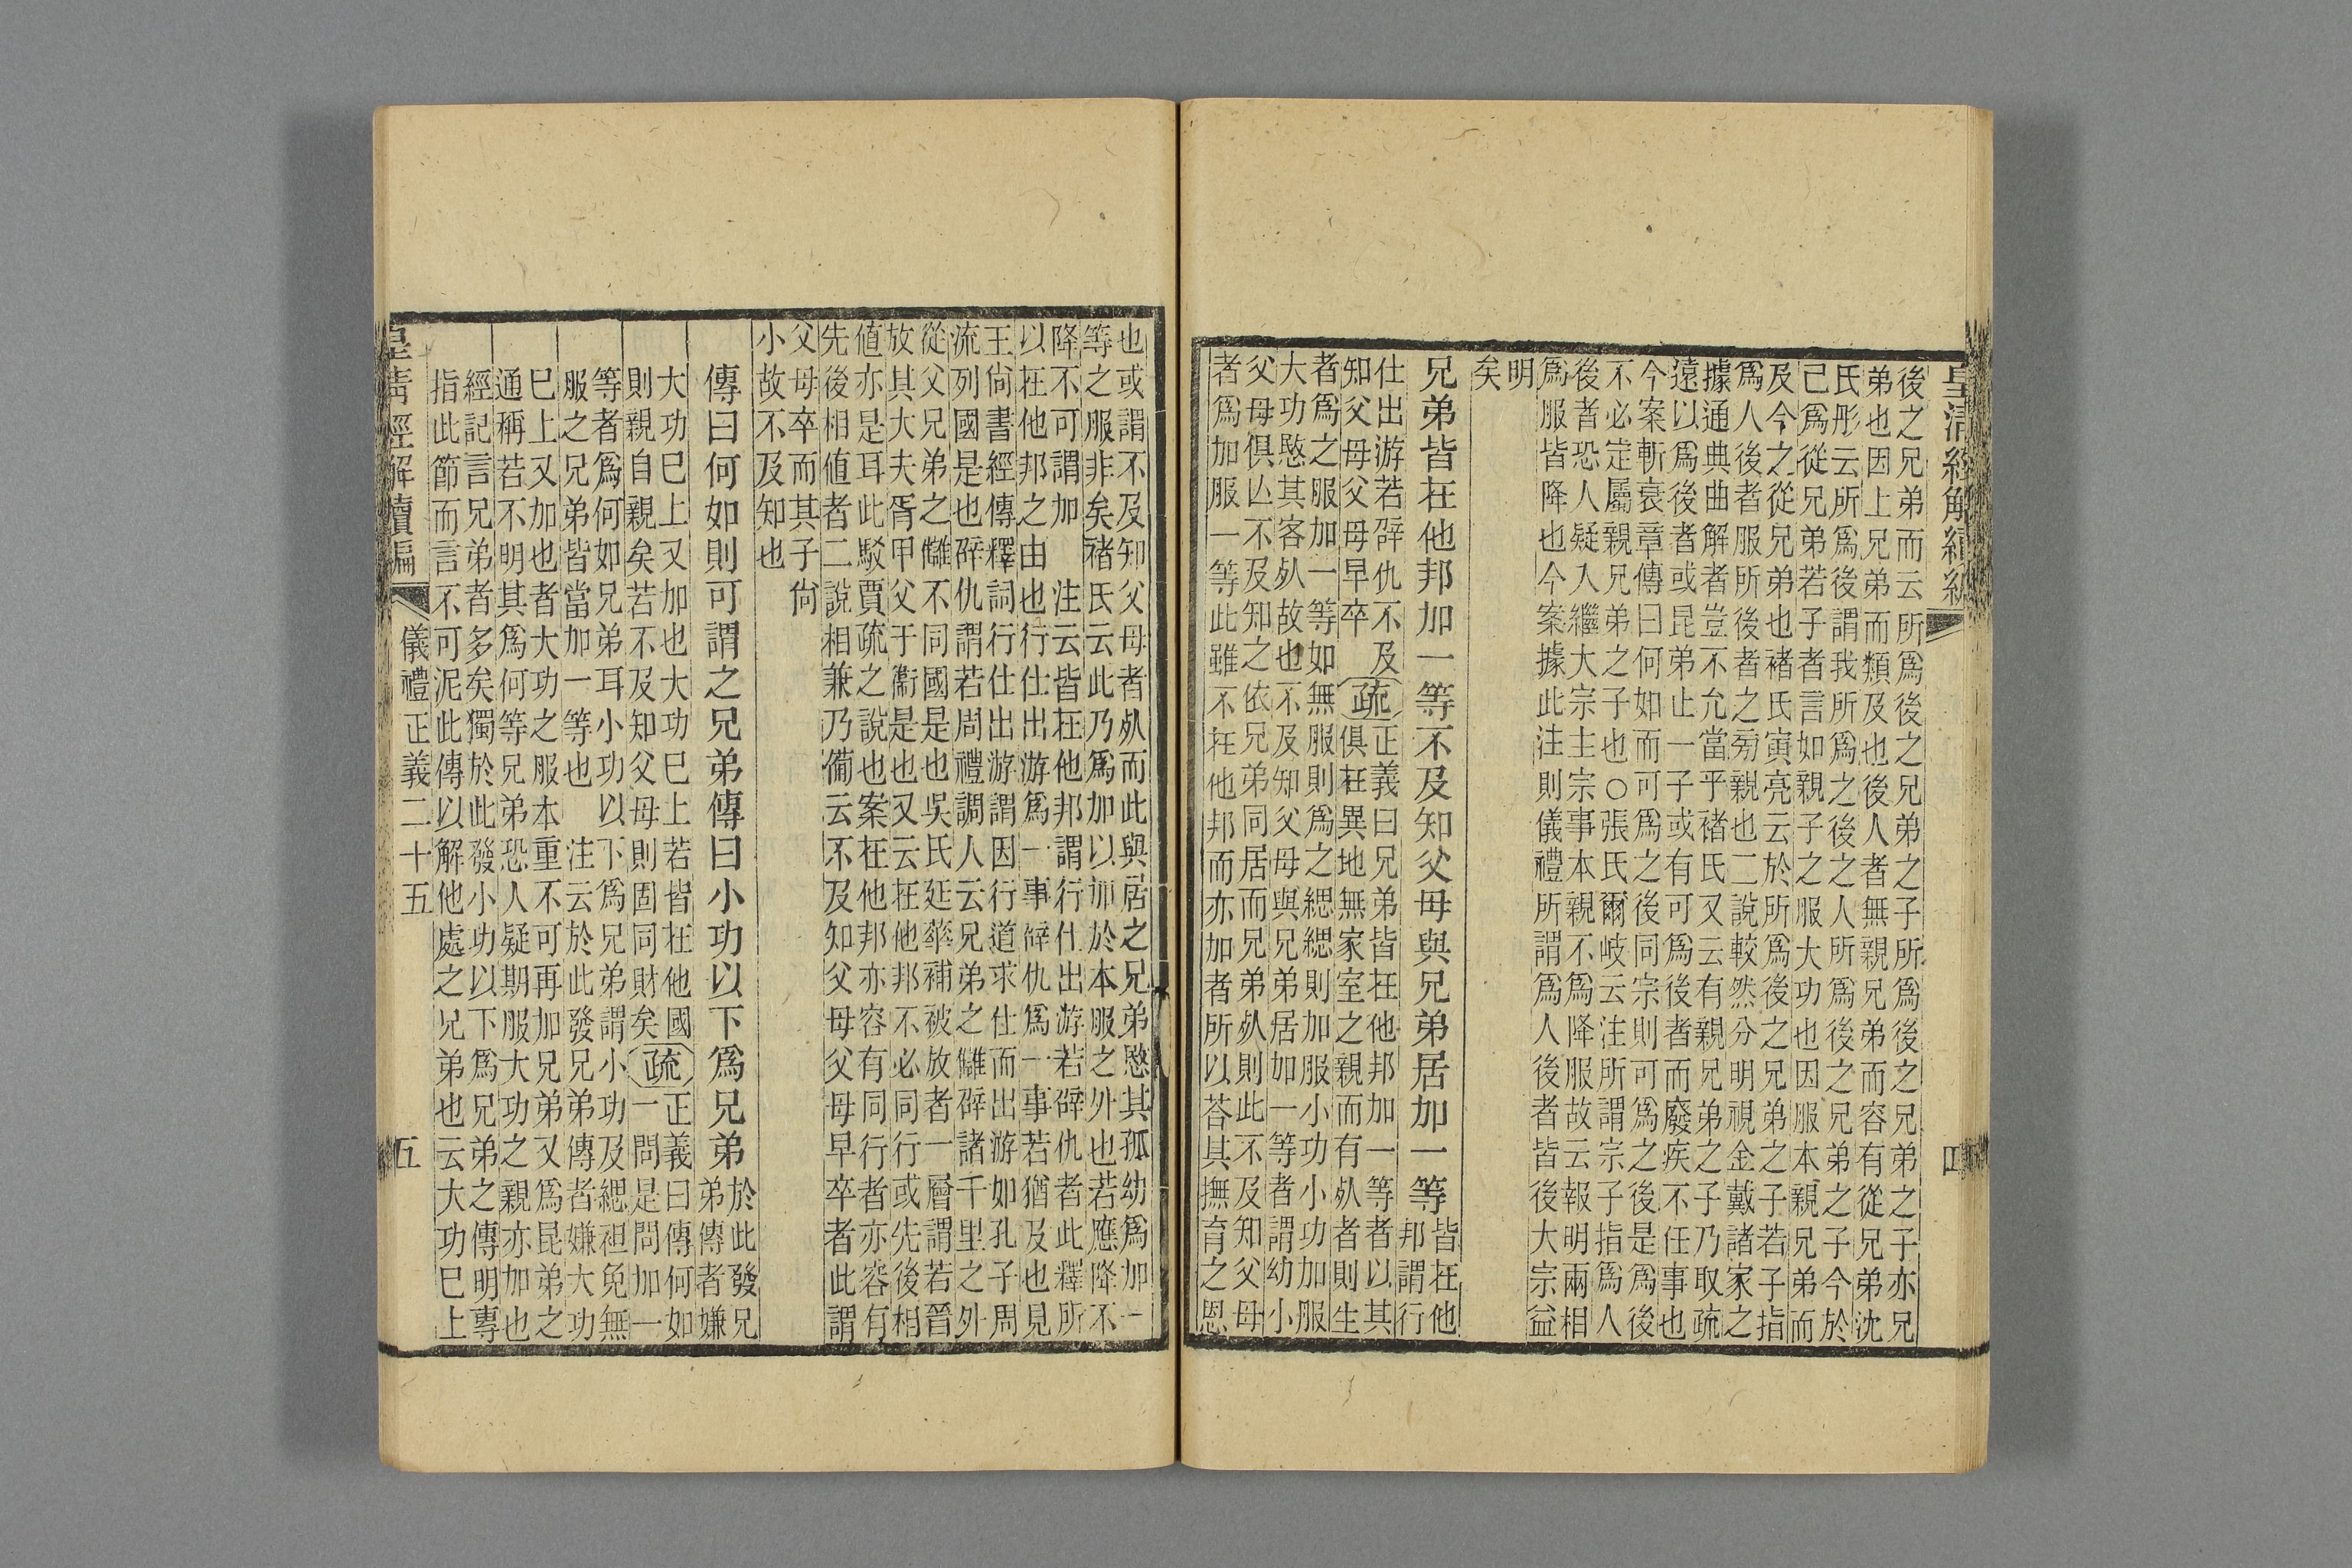 皇清經解續編
四
後之兄弟而云所爲後之兄弟之子所爲後之兄弟之子亦兄
弟也因上兄弟而類及也後人者無親兄弟而容有從兄弟沈
氏彤云所爲後謂我所爲之後之人所爲後之兄弟之子今於
己爲從兄弟若子者言如親子之服大功也因服本親兄弟而
及今之從兄弟也褚氏寅亮云於所爲後之兄弟之子若子指
爲人後者服所後者之旁親也二說較然分明視金戴諸家之
據通典曲解者豈不允當乎褚氏又云有親兄弟之子乃取疏
遠以爲後者或昆弟止一子或有可爲後者而廢疾不任事也
今案斬衰章傳曰何如而可爲之後同宗則可爲之後是爲後
不必定屬親兄弟之子也○張氏爾岐云注所謂宗子指爲人
後者恐人疑入繼大宗主宗事本親不爲降服故云報明兩相
爲服皆降也今案據此注則儀禮所謂爲人後者皆後大宗益
明
矣
兄弟皆在他邦加一等不及知父母與兄弟居加一等
皆在他
邦謂行
仕出游若辟仇不及
知父母父母早卒
疏
正義曰兄弟皆在他邦加一等者以其
俱在異地無家室之親而有㱙者則生
者爲之服加一等如無服則爲之緦緦則加服小功小功加服
大功愍其客㱙故也不及知父母與兄弟居加一等者謂幼小
父母俱亾不及知之依兄弟同居而兄弟㱙則此不及知父母
者爲加服一等此雖不在他邦而亦加者所以荅其撫育之恩
也或謂不及知父母者㱙而此與居之兄弟愍其孤幼爲加一
等之服非矣褚氏云此乃爲加以加於本服之外也若應降不
降不可謂加 注云皆在他邦謂行仕出游若辟仇者此釋所
以在他邦之由也行仕出游爲一事辟仇爲一事若猶及也見
王尚書經傳釋詞行仕出游謂因行道求仕而出游如孔子周
流列國是也辟仇謂若周禮調人云兄弟之讎辟諸千里之外
從父兄弟之讎不同國是也吳氏廷華補被放者一層謂若晉
放其大夫胥甲父于衞是也又云在他邦不必同行或先後相
値亦是耳此駁賈疏之說也案在他邦亦容有同行者亦容有
先後相値者二說相兼乃備云不及知父母父母早卒者此謂
父母卒而其子尚
小故不及知也
傳曰何如則可謂之兄弟傳曰小功以下爲兄弟
於此發兄
弟傳者嫌
大功已上又加也大功已上若皆在他國
則親自親矣若不及知父母則固同財矣
疏
正義曰傳何如
一問是問加一
等者爲何如兄弟耳小功以下爲兄弟謂小功及緦袒免無
服之兄弟皆當加一等也 注云於此發兄弟傳者嫌大功
已上又加也者大功之服本重不可再加兄弟又爲昆弟之
通稱若不明其爲何等兄弟恐人疑期服大功之親亦加也
經記言兄弟者多矣獨於此發小功以下爲兄弟之傳明專
指此節而言不可泥此傳以解他處之兄弟也云大功已上
皇清經解續編
儀禮正義二十五
五